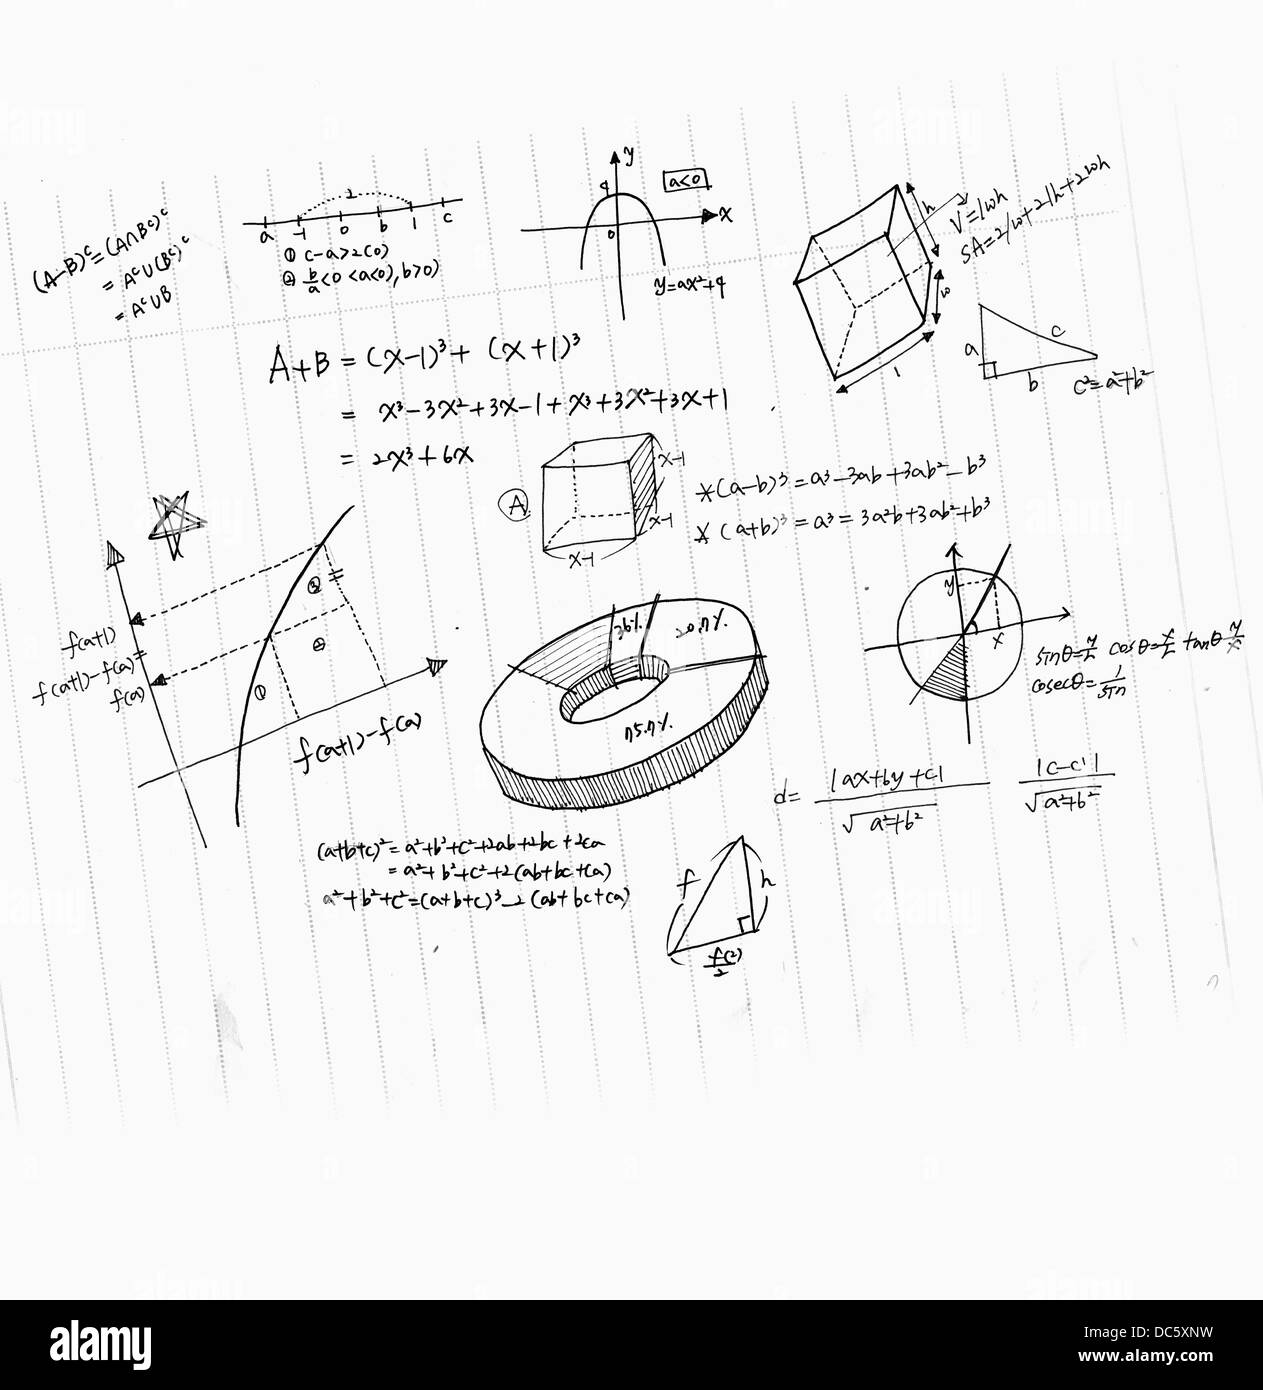 (A-B)ᶜ=(A∩Bᶜ)ᶜ
= Aᶜ∪(Bᶜ)ᶜ
= Aᶜ∪B
2
a -1 0 b 1 c
① c-a>2(0)
② b/a<0 <a<0), b>0)
y
4
a<0
x
0
y=ax²+4
h
w
l
V=lwh
SA=2lw+2lh+2wh
a
b
c
c²=a²+b²
A+B = (x-1)³+ (x+1)³
= x³-3x²+3x-1+x³+3x²+3x+1
= 2x³+6x
A
x-1
x-1
x-1
*(a-b)³=a³-3ab+3ab²-b³
*(a+b)³=a³=3a²b+3ab²+b³
f(a+1)
f(a+1)-f(a)=
f(a)
①
②
③
f(a+1)-f(a)
36%
20.7%
75.7%
y
x
cosecθ=1/sin
d= |ax+by+c| / √a²+b²
|c-c'| / √a²+b²
(a+b+c)²=a²+b²+c²+2ab+2bc+2ca
=a²+b²+c²+2(ab+bc+ca)
a²+b²+c²=(a+b+c)³-2(ab+bc+ca)
f
h
f(2)/2
alamy
Image ID: DC5XNW
www.alamy.com